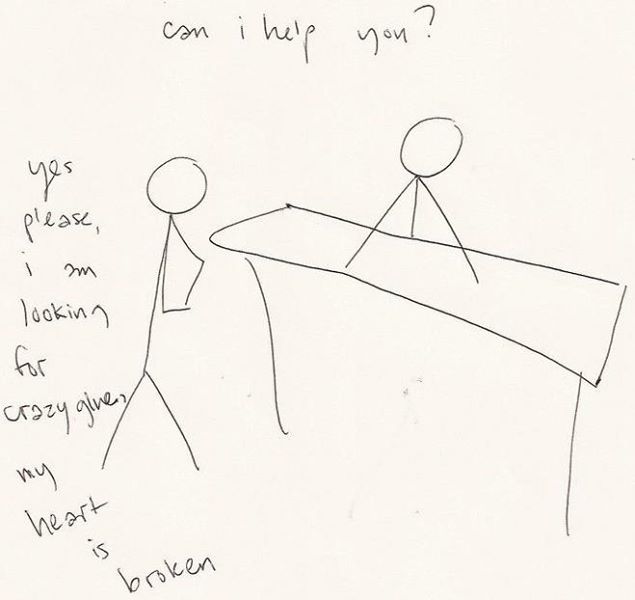 can i help you?
yes
please,
i am
looking
for
crazy glue,
my
heart
is
broken